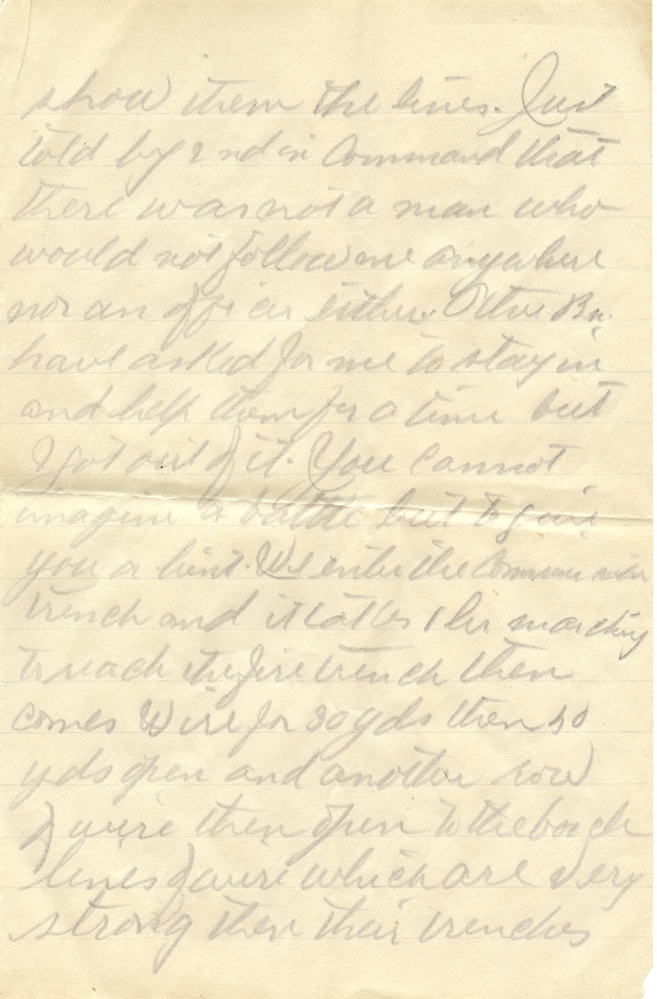 show them the lines. Just
told by 2nd in Command that
there was not a man who
would not follow me anywhere
nor an officer either. Other Bn.
have asked for me to stay in
and help them for a time but
I got out of it. You cannot
imagine a battle but to give
you a hint. We enter the Communication
trench and it takes 1 hr marching
to reach the fire trench then
comes Wire for 30 yds then 50
yds open and another row
of wire then open to the
lines of wire which are very
strong then their trenches